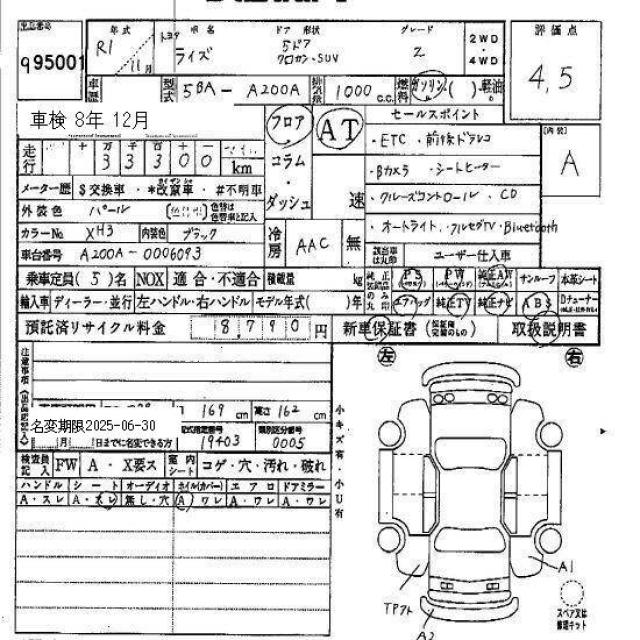 年式 車名 ドア 形状 グレード 評価点
95001 R1 11月 トヨタ ライズ 5ドア クロカン・SUV Z 2WD・4WD 4,5
車歴 型式 5BA-A200A 排気量 1000 c.c. 燃料 ガソリン( )・軽油
車検 8年 12月 フロア AT セールスポイント
・ETC・前後ドラレコ A
走行 十 万 千 百 十
3 3 3 0 0 km コラム ・Bカメラ・シートヒーター
メーター歴 $交換車・*改竄車・#不明車 ・ダッシュ 速 ・クルーズコントロール・CD
外装色 パール 色替は色替車と記入 ・オートライト・フルセグTV・Bluetooth
カラーNo XH3 内装色 ブラック 冷房 AAC 無
車台番号 A200A-0006093 該当車は丸印 ユーザー仕入車
乗車定員(5)名 NOX 適合・不適合 積載量 kg 純正 PS PW 純正AW サンルーフ 本革シート
輸入車 ディーラー・並行 左ハンドル・右ハンドル モデル年式( )年 のみ丸印 エアバッグ 純正TV 純正ナビ ABS Dチューナー
預託済リサイクル料金 18,790円 新車保証書 取扱説明書
左 右
注意事項
169 cm 高さ 162 cm
名変期限2025-06-30 型式指定番号 類別区分番号
月 日までに名変できる方 19403 0005
検査員記入 FW A・X要ス 室内シート コゲ・穴・汚れ・破れ
ハンドル シート オーディオ ホイル(カバー) エアロ ドアミラー
A・スレ A・スレ 無し・穴 A ワレ A・ワレ A・ワレ
小キズ有・小U有
A1
TPフト
A2
スペア又は修理キット